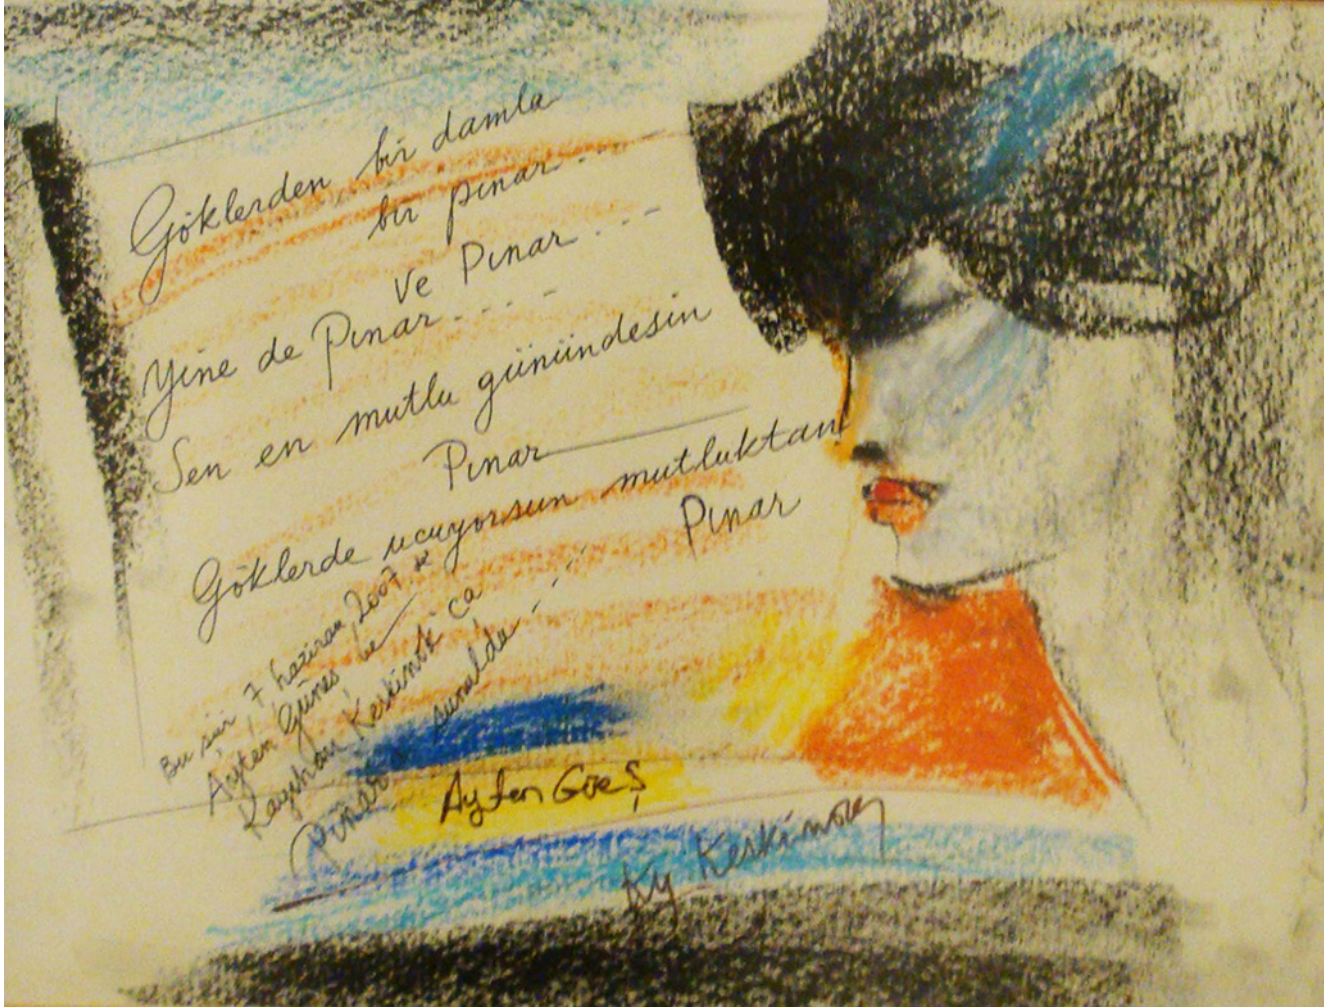 Göklerden bir damla
bir pınar...
ve Pınar...
Yine de Pınar....
Sen en mutlu günündesin
Pınar
Göklerde uçuyorsun mutluktan
Pınar
Bu şiir, 7 haziran, 2007
Ayten Güneş ve
Kayıhan Keskinok ca
Pınar'a sunuldu
Ayten Güeş
Ky Keskinok